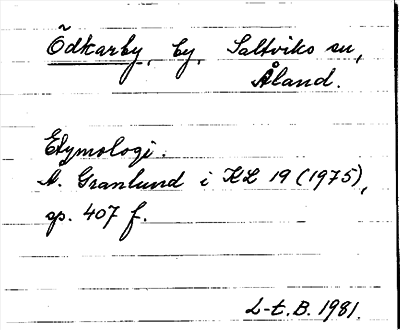 Ödkarby, by, Saltviks sn,
Åland.
Etymologi.
Å. Granlund i KL 19 (1975),
sp. 407 f.
L-t.B. 1981.